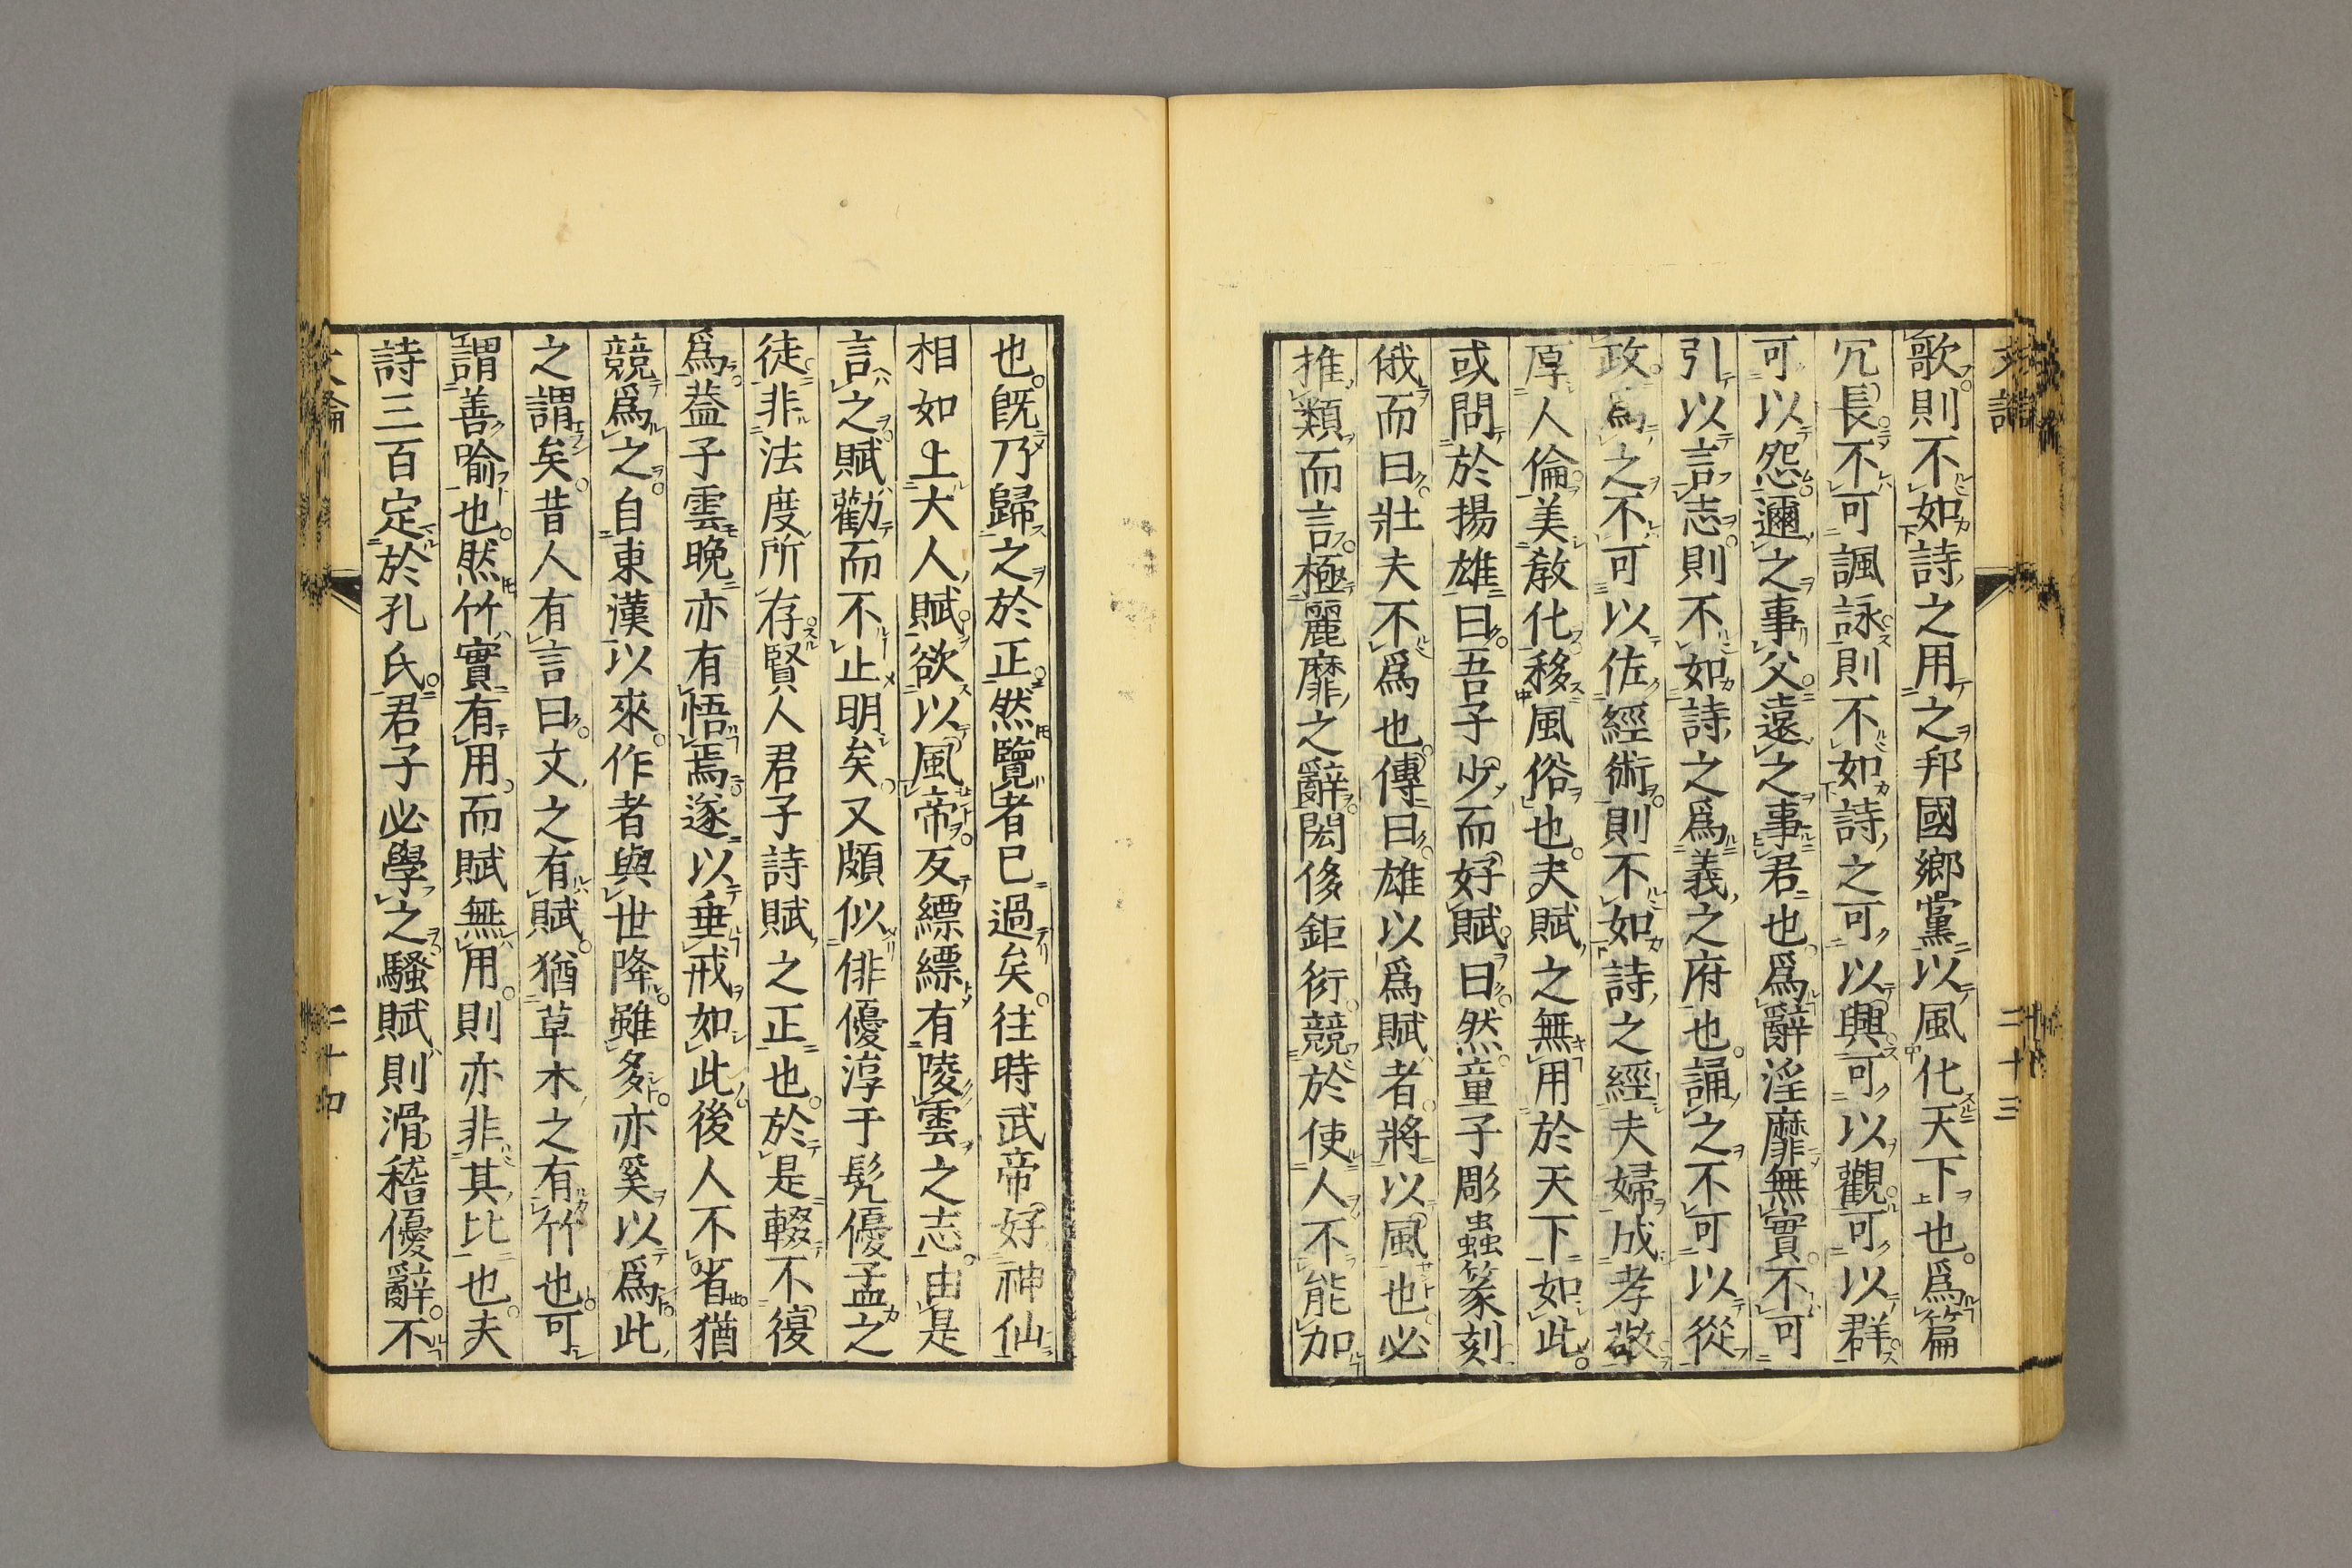 歌則不如詩之用之邦國鄉黨以風化天下也爲篇
冗長不可諷詠則不如詩之可以興可以觀可以群
可以怨邇之事父遠之事君也爲辭淫靡無實不可
引以言志則不如詩之爲義之府也誦之不可以從
政爲之不可以佐經術則不如詩之經夫婦成孝敬
厚人倫美敎化移風俗也夫賦之無用於天下如此
或問於揚雄曰吾子少而好賦曰然童子彫蟲篆刻
俄而曰壯夫不爲也傳曰雄以爲賦者將以風也必
推類而言極麗靡之辭閎侈鉅衍競於使人不能加
二十三
也既乃歸之於正然覽者已過矣往時武帝好神仙
相如上大人賦欲以風帝反縹縹有陵雲之志由是
言之賦勸而不止明矣又頗似俳優淳于髡優孟之
徒非法度所存賢人君子詩賦之正也於是輟不復
爲葢子雲晚亦有悟焉遂以垂戒如此後人不省猶
競爲之自東漢以來作者與世降雖多亦奚以爲此
之謂矣昔人有言曰文之有賦猶草木之有竹也可
謂善喻也然竹實有用而賦無用則亦非其比也夫
詩三百定於孔氏君子必學之騷賦則滑稽優辭不